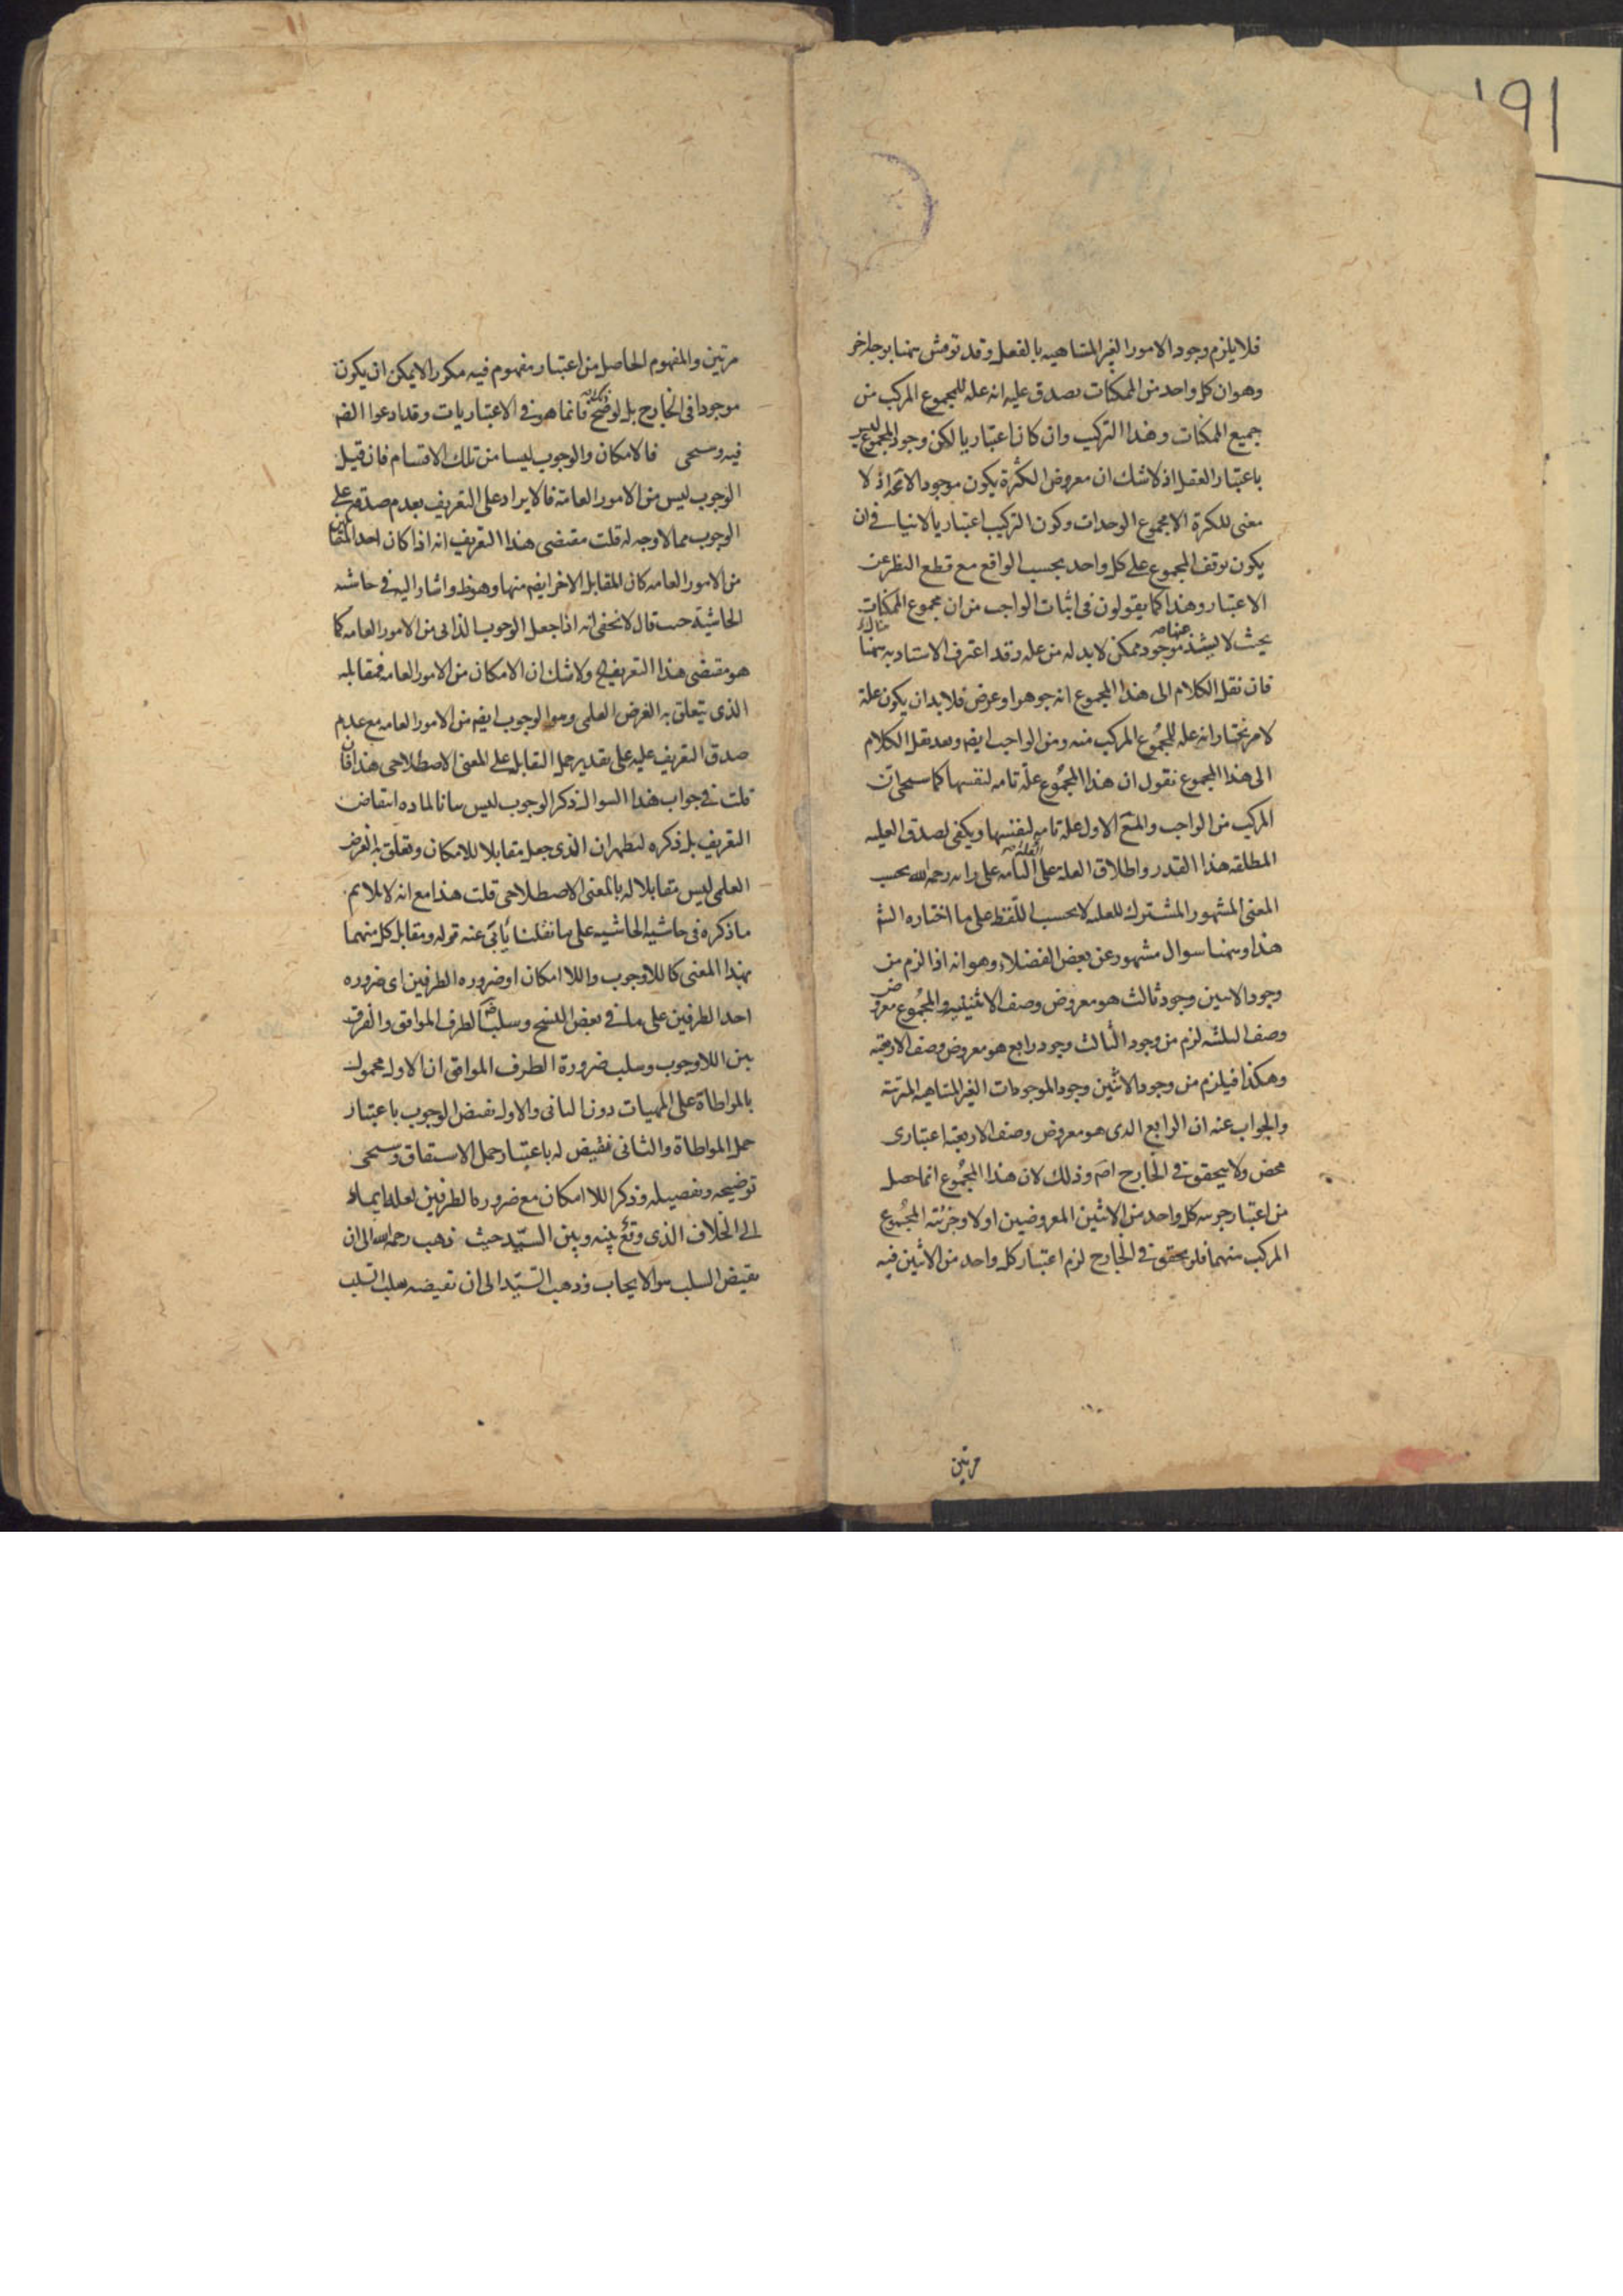 فلا يلزم وجود الامور الغير المتناهيه بالفعل وقد نوقش ههنا بوجه اخر
وهو ان كل واحد من الممكنات يصدق عليه انه علة للمجموع المركب من
جميع الممكنات وهذا التركيب وان كان اعتباريا لكن وجود المجموع ليس
باعتبار العقل اذ لا شك ان معروض الكثرة يكون موجودا لا محة اذ لا
معنى للكثرة الا مجموع الوحدات وكون التركيب اعتباريا لا ينافى ان
يكون توقف المجموع على كل واحد بحسب الواقع مع قطع النظر عن
الاعتبار وهذا كما يقولون فى اثبات الواجب من ان مجموع الممكنات
بحيث لا يشذ عنها موجود ممكن لا بد له من علة وقد اعترف الاستاد به ههنا
فان نقل الكلام الى هذا المجموع انه جوهر او عرض فلا بد ان يكون علة
لامر نختار انه علة للمجموع المركب منه ومن الواجب ايضم وبعد نقل الكلام
الى هذا المجموع نقول ان هذا المجموع علة تامه لنفسها كما سيجى ان
المركب من الواجب والمع الاول علة تامه لنفسها ويكفى لصدق العليه
المطلقه هذا القدر واطلاق العلة على العلة التامه على رايه رحمه الله بحسب
المعنى المشهور المشترك للعله لا بحسب اللفظ على ما اختاره الشم
هذا وههنا سوال مشهور عن بعض الفضلاء وهو انه اذا لزم من
وجود الاثنين وجود ثالث هو معروض وصف الاثنينيه والمجموع معروض
وصف الثلثه لزم من وجود الثالث وجود رابع هو معروض وصف الاربعة
وهكذا فيلزم من وجود الاثنين وجود الموجودات الغير المتناهيه المترتبة
والجواب عنه ان الرابع الذى هو معروض وصف الاربعة اعتبارى
محض ولا يتحقق فى الخارج اصم وذلك لان هذا المجموع انما حصل
من اعتبار جزئيه كل واحد من الاثنين المعروضين اولا وجزئية المجموع
المركب منهما فلو تحقق فى الخارج لزم اعتبار كل واحد من الاثنين فيه
مرتين
مرتين والمفهوم الحاصل من اعتبار مفهوم فيه مكررا لا يمكن ان يكون
موجودا فى الخارج بل لو صح فانما هو فى الاعتباريات وقد ادعوا الضم
فيه وسيجى فالامكان والوجوب ليسا من تلك الاقسام فان قيل
الوجوب ليس من الامور العامة فالايراد على التعريف بعدم صدقه على
الوجوب مما لا وجه له قلت مقتضى هذا التعريف انه اذا كان احد المتقابلين
من الامور العامه كان المقابل الاخر ايضم منها وهو ظ واشار اليه فى حاشيه
الحاشية حيث قال لا يخفى انه اذا جعل الوجوب الذاتى من الامور العامه كما
هو مقتضى هذا التعريف ولا شك ان الامكان من الامور العامه فمقابله
الذى يتعلق به الغرض العلمى وهو الوجوب ايضم من الامور العامه مع عدم
صدق التعريف عليه على تقدير حمل التقابل على المعنى الاصطلاحى هذا فان
قلت فى جواب هذا السوال ذكر الوجوب ليس بيانا لماده انتقاض
التعريف بل ذكره ليظهر ان الذى جعل مقابلا للامكان وتعلق به الغرض
العلمى ليس مقابلا له بالمعنى الاصطلاحى قلت هذا مع انه لا يلايم
ما ذكره فى حاشية الحاشيه على ما نقلنا يأبى عنه قوله ومقابل كل منهما
بهذا المعنى كاللاوجوب واللاامكان او ضروره الطرفين اى ضروره
احد الطرفين على ما فى بعض النسخ وسلب الطرف الموافق والفرق
بين اللاوجوب وسلب ضرورة الطرف الموافق ان الاول محمول
بالمواطاة على المهيات دون الثانى والاول نقيض الوجوب باعتبار
حمل المواطاة والثانى نقيض له باعتبار حمل الاشتقاق وسيجى
توضيحه وتفصيله وذكر اللاامكان مع ضرورة الطرفين لعله ايماء
الى الخلاف الذى وقع بينه وبين السيد حيث ذهب رحمه الله الى ان
نقيض السلب هو الايجاب وذهب السيد الى ان نقيضه سلب السلب